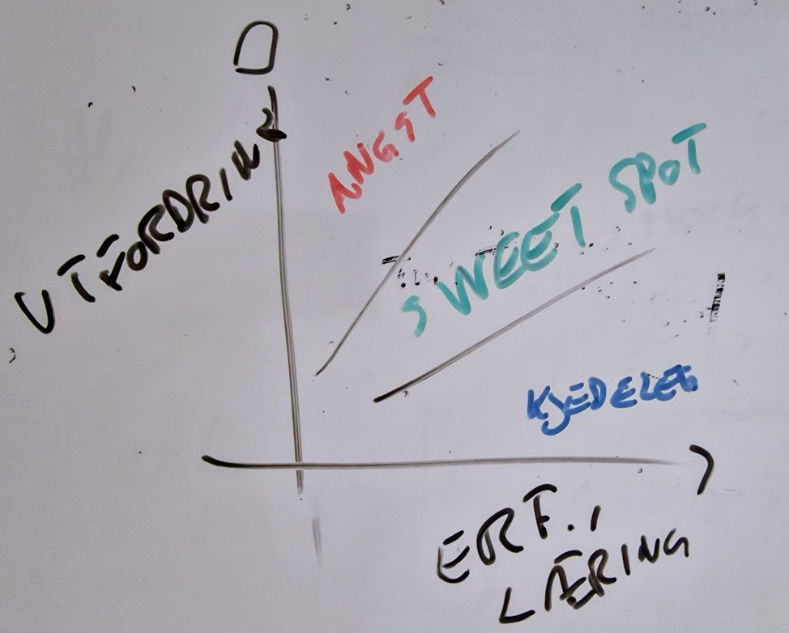 UTFORDRING
ANGST
SWEET SPOT
KJEDELEG
ERF.,
LÆRING